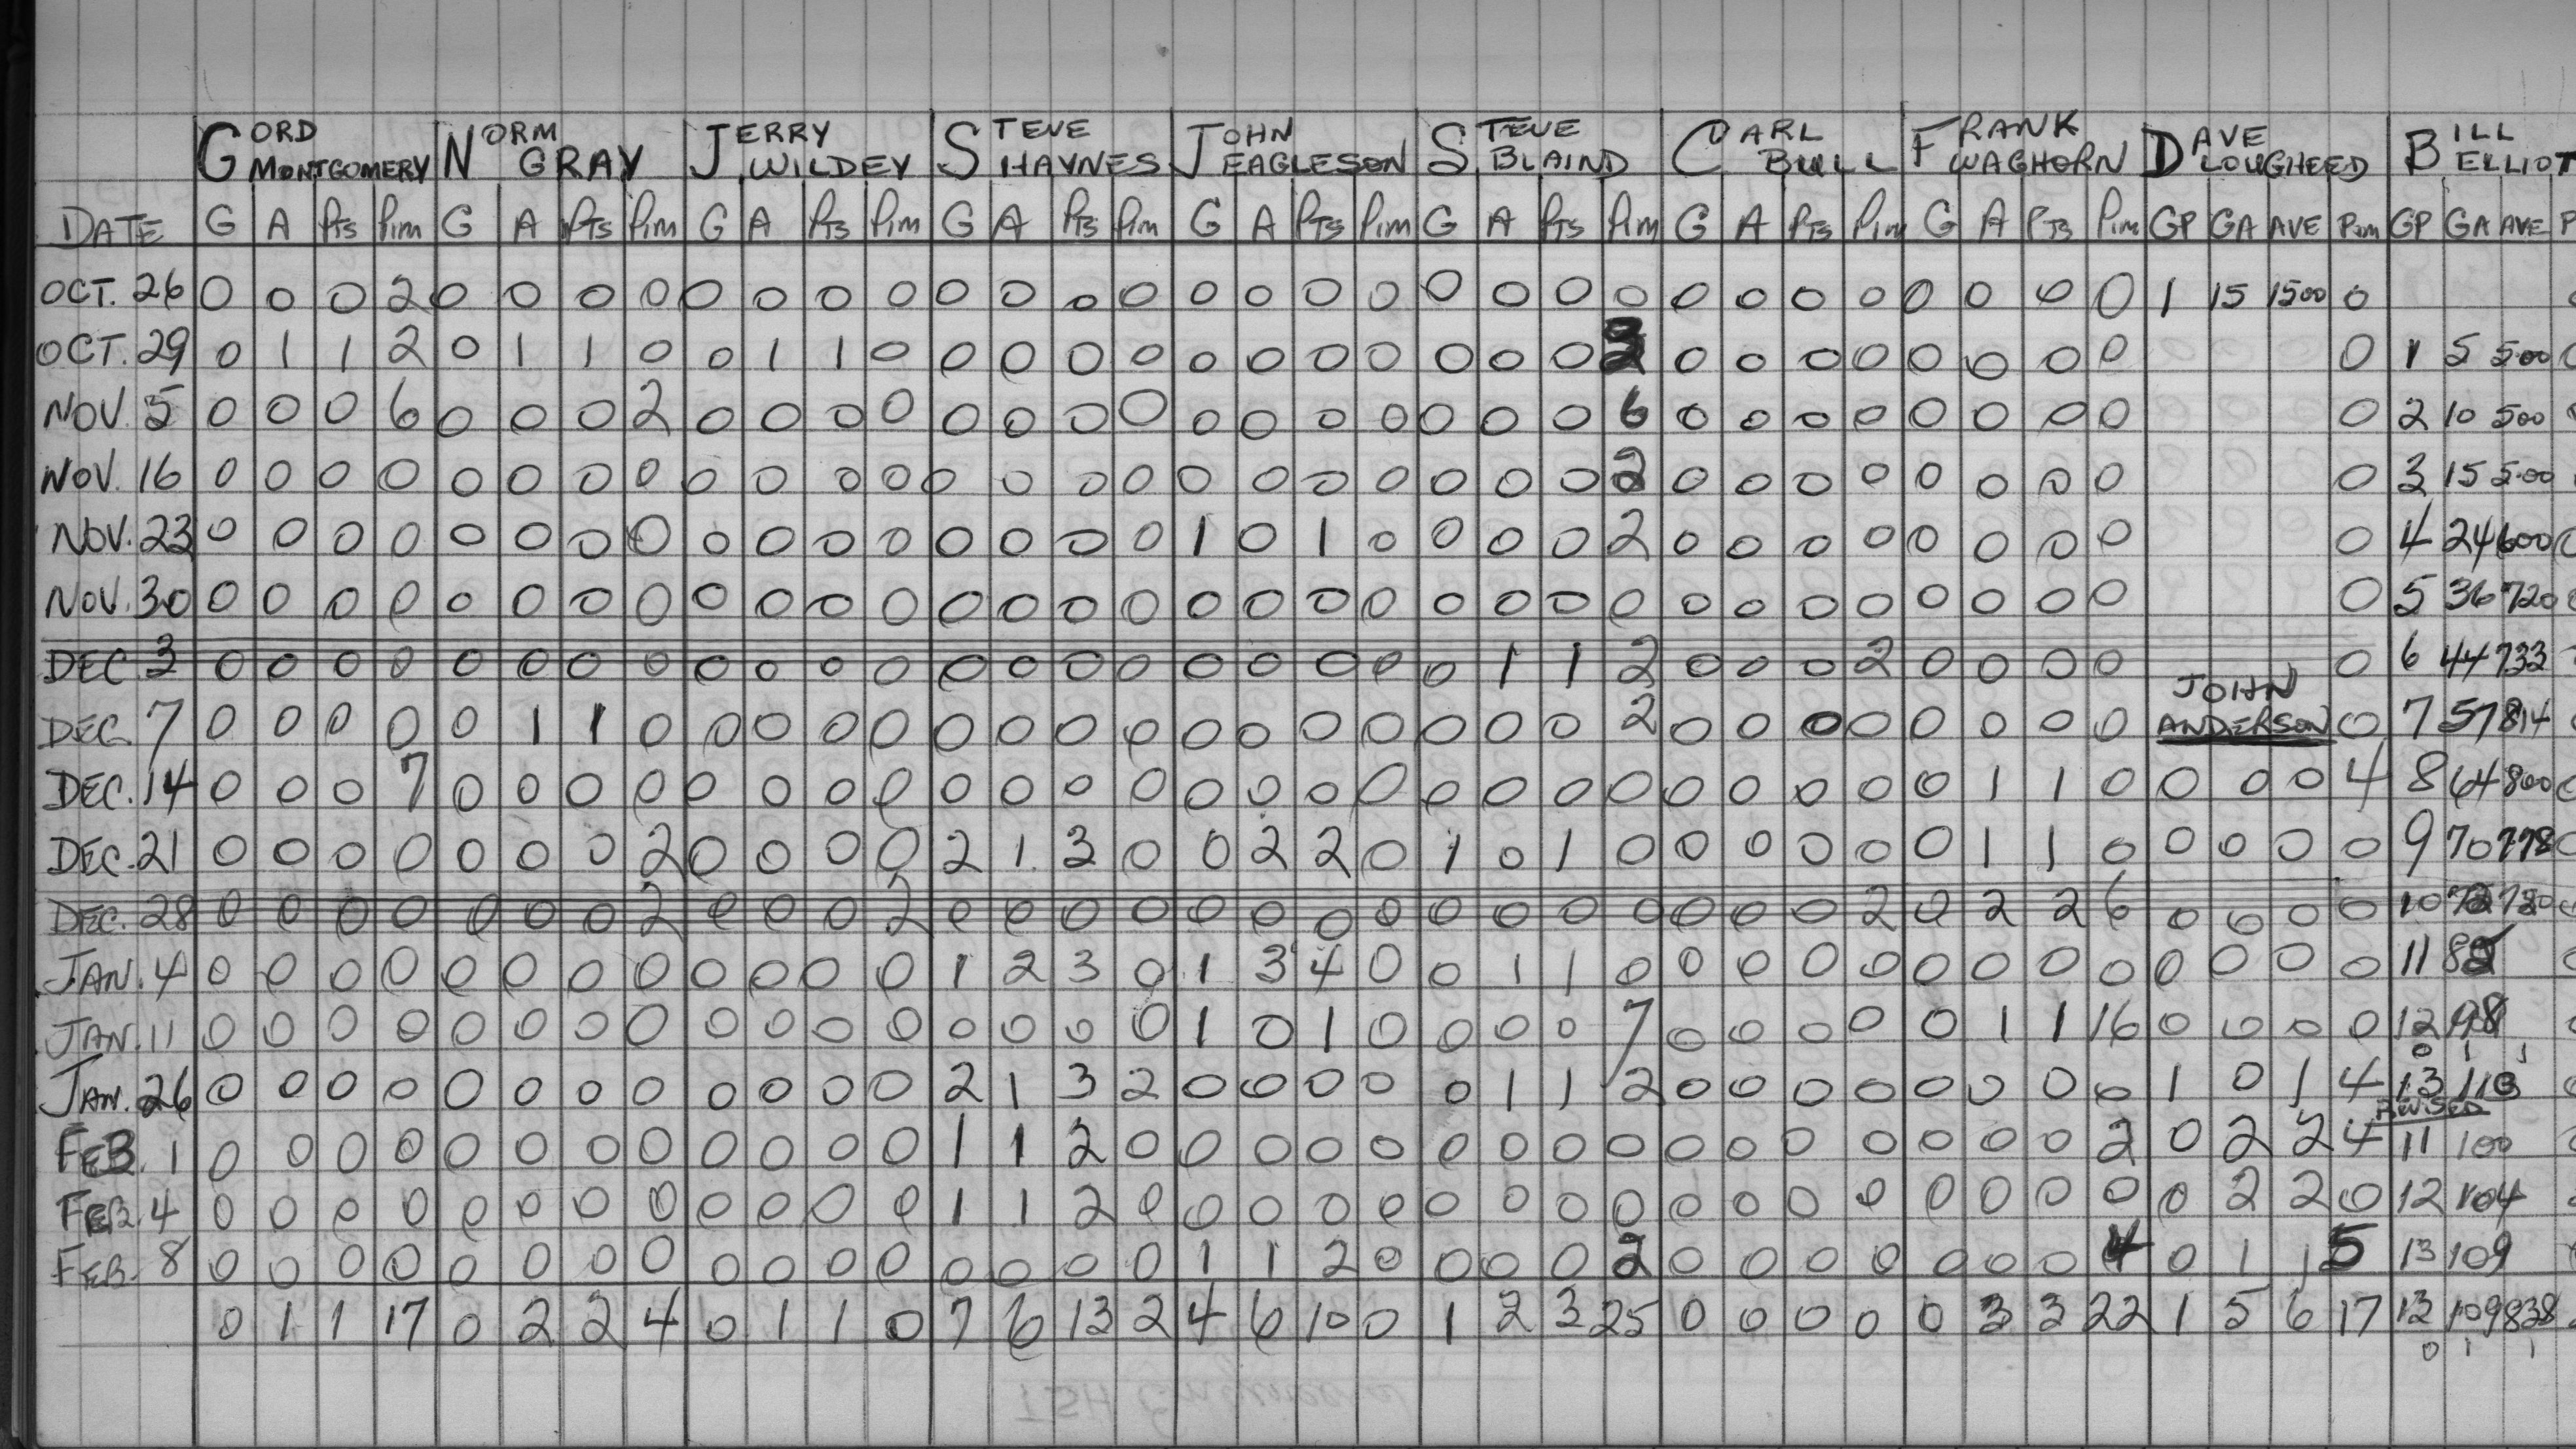 GORD MONTGOMERY NORM GRAY JERRY WILDEY STEVE HAYNES JOHN EAGLESON STEVE BLAIND CARL BULL FRANK WAGHORN DAVE LOUGHEED BILL ELLIOT
DATE G A Pts Pim G A Pts Pim G A Pts Pim G A Pts Pim G A PTS Pim G A Pts Pim G A Pts Pim G A PTS Pim GP GA AVE Pim GP GA AVE P
OCT. 26 0 0 0 2 0 0 0 0 0 0 0 0 0 0 0 0 0 0 0 0 0 0 0 0 0 0 0 0 0 0 0 0 1 15 1500 0
OCT. 29 0 1 1 2 0 1 1 0 0 1 1 0 0 0 0 0 0 0 0 0 0 0 0 0 0 0 0 0 0 0 0 0 1 5 5.00
NOV. 5 0 0 0 6 0 0 0 2 0 0 0 0 0 0 0 0 0 0 0 0 0 0 0 6 0 0 0 0 0 0 0 0 0 2 10 500
NOV. 16 0 0 0 0 0 0 0 0 0 0 0 0 0 0 0 0 0 0 0 0 0 0 0 2 0 0 0 0 0 0 0 0 0 3 15 5.00
NOV. 23 0 0 0 0 0 0 0 0 0 0 0 0 0 0 0 0 1 0 1 0 0 0 0 2 0 0 0 0 0 0 0 0 0 4 24 600
NOV. 30 0 0 0 0 0 0 0 0 0 0 0 0 0 0 0 0 0 0 0 0 0 0 0 0 0 0 0 0 0 0 0 0 0 5 36 720
DEC 3 0 0 0 0 0 0 0 0 0 0 0 0 0 0 0 0 0 0 0 0 0 1 1 2 0 0 0 2 0 0 0 0 0 6 44 733
DEC. 7 0 0 0 0 0 1 1 0 0 0 0 0 0 0 0 0 0 0 0 0 0 0 0 2 0 0 0 0 0 0 0 0 JOHN ANDERSON 0 7 57 814
DEC. 14 0 0 0 7 0 0 0 0 0 0 0 0 0 0 0 0 0 0 0 0 0 0 0 0 0 0 0 0 0 1 1 0 0 0 0 4 8 64 800
DEC. 21 0 0 0 0 0 0 0 2 0 0 0 0 2 1 3 0 0 2 2 0 1 0 1 0 0 0 0 0 0 1 1 0 0 0 0 0 9 70 778
DEC. 28 0 0 0 0 0 0 0 2 0 0 0 2 0 0 0 0 0 0 0 0 0 0 0 0 0 0 0 2 0 2 2 6 0 0 0 0 10
JAN. 4 0 0 0 0 0 0 0 0 0 0 0 0 1 2 3 0 1 3 4 0 0 1 1 0 0 0 0 0 0 0 0 0 0 0 0 0 11
JAN. 11 0 0 0 0 0 0 0 0 0 0 0 0 0 0 0 0 1 0 1 0 0 0 0 7 0 0 0 0 0 1 1 16 0 0 0 0 12 98
0 1 1
JAN. 26 0 0 0 0 0 0 0 0 0 0 0 0 2 1 3 2 0 0 0 0 0 1 1 2 0 0 0 0 0 0 0 0 1 0 1 4 13
REVISED
FEB. 1 0 0 0 0 0 0 0 0 0 0 0 0 1 1 2 0 0 0 0 0 0 0 0 0 0 0 0 0 0 0 0 2 0 2 2 4 11 100
FEB. 4 0 0 0 0 0 0 0 0 0 0 0 0 1 1 2 0 0 0 0 0 0 0 0 0 0 0 0 0 0 0 0 0 0 2 2 0 12 104
FEB. 8 0 0 0 0 0 0 0 0 0 0 0 0 0 0 0 0 1 1 2 0 0 0 0 2 0 0 0 0 0 0 0 4 0 1 1 5 13 109
0 1 1 17 0 2 2 4 0 1 1 0 7 6 13 2 4 6 10 0 1 2 3 25 0 0 0 0 0 3 3 22 1 5 6 17 13 109 838
0 1 1